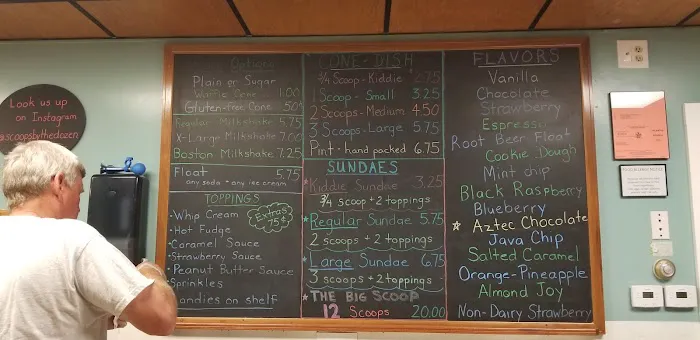 Look us up
on Instagram
@scoopsbythedozen
Options
Plain or Sugar
Waffle Cone 1.00
Gluten-free Cone .50¢
Regular Milkshake 5.75
X-Large Milkshake 7.00
Boston Milkshake 7.25
Float 5.75
any soda + any ice cream
TOPPINGS
Extras
75¢
• Whip Cream
• Hot Fudge
• Caramel Sauce
• Strawberry Sauce
• Peanut Butter Sauce
• Sprinkles
Candies on shelf
CONE - DISH
3/4 Scoop - Kiddie 2.75
1 Scoop - Small 3.25
2 Scoops - Medium 4.50
3 Scoops - Large 5.75
Pint - hand packed 6.75
SUNDAES
* Kiddie Sundae 3.25
3/4 scoop + 2 toppings
* Regular Sundae 5.75
2 scoops + 2 toppings
* Large Sundae 6.75
3 scoops + 2 toppings
* THE BIG SCOOP
12 Scoops 20.00
FLAVORS
Vanilla
Chocolate
Strawberry
Root Beer Float
Cookie Dough
Mint chip
Black Raspberry
Blueberry
☆ Aztec Chocolate
Java Chip
Salted Caramel
Orange-Pineapple
Almond Joy
Non-Dairy Strawberry